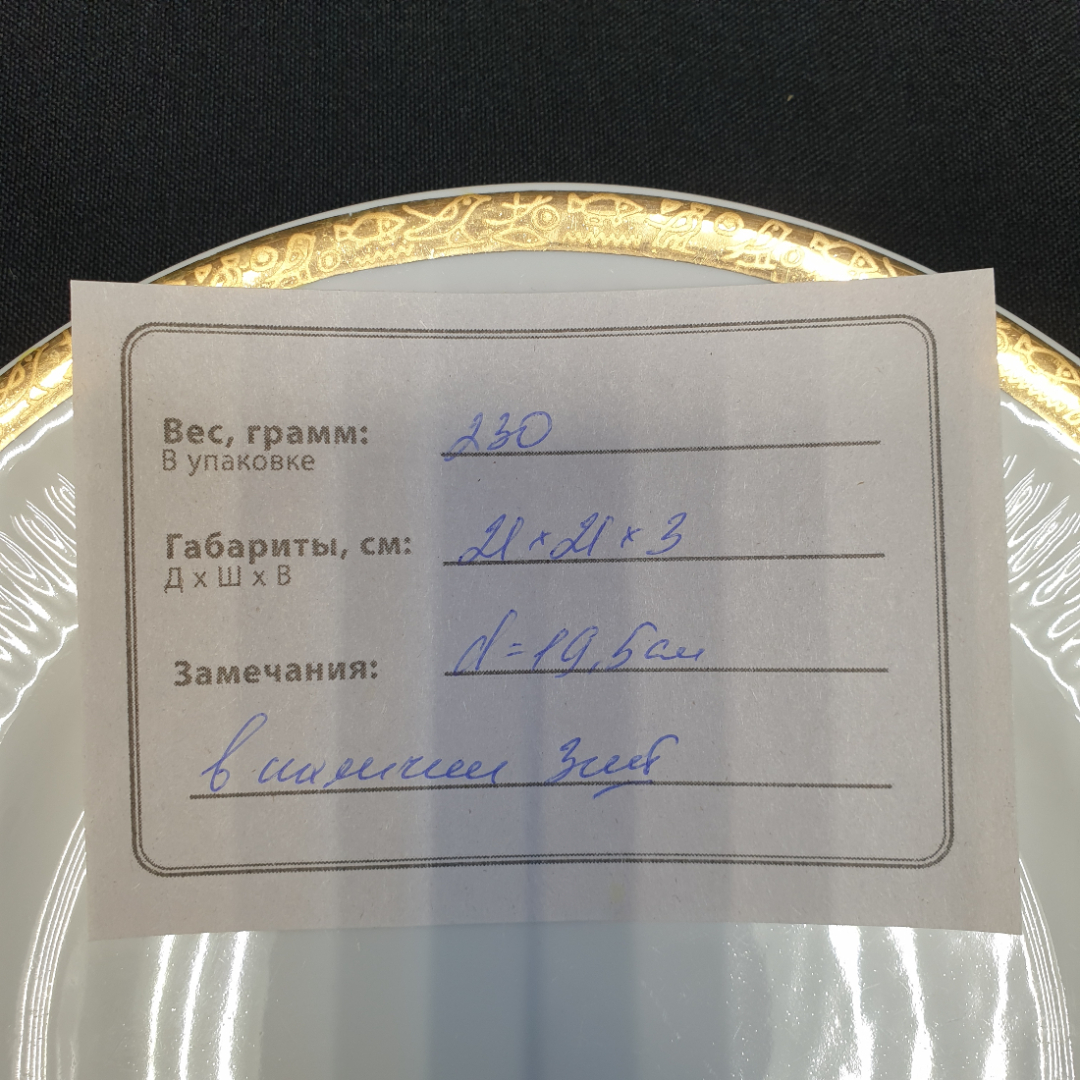 Вес, грамм: 230
В упаковке
Габариты, см: 21 x 21 x 3
Д х Ш х В
Замечания: d=19,5см
в наличии 3шт